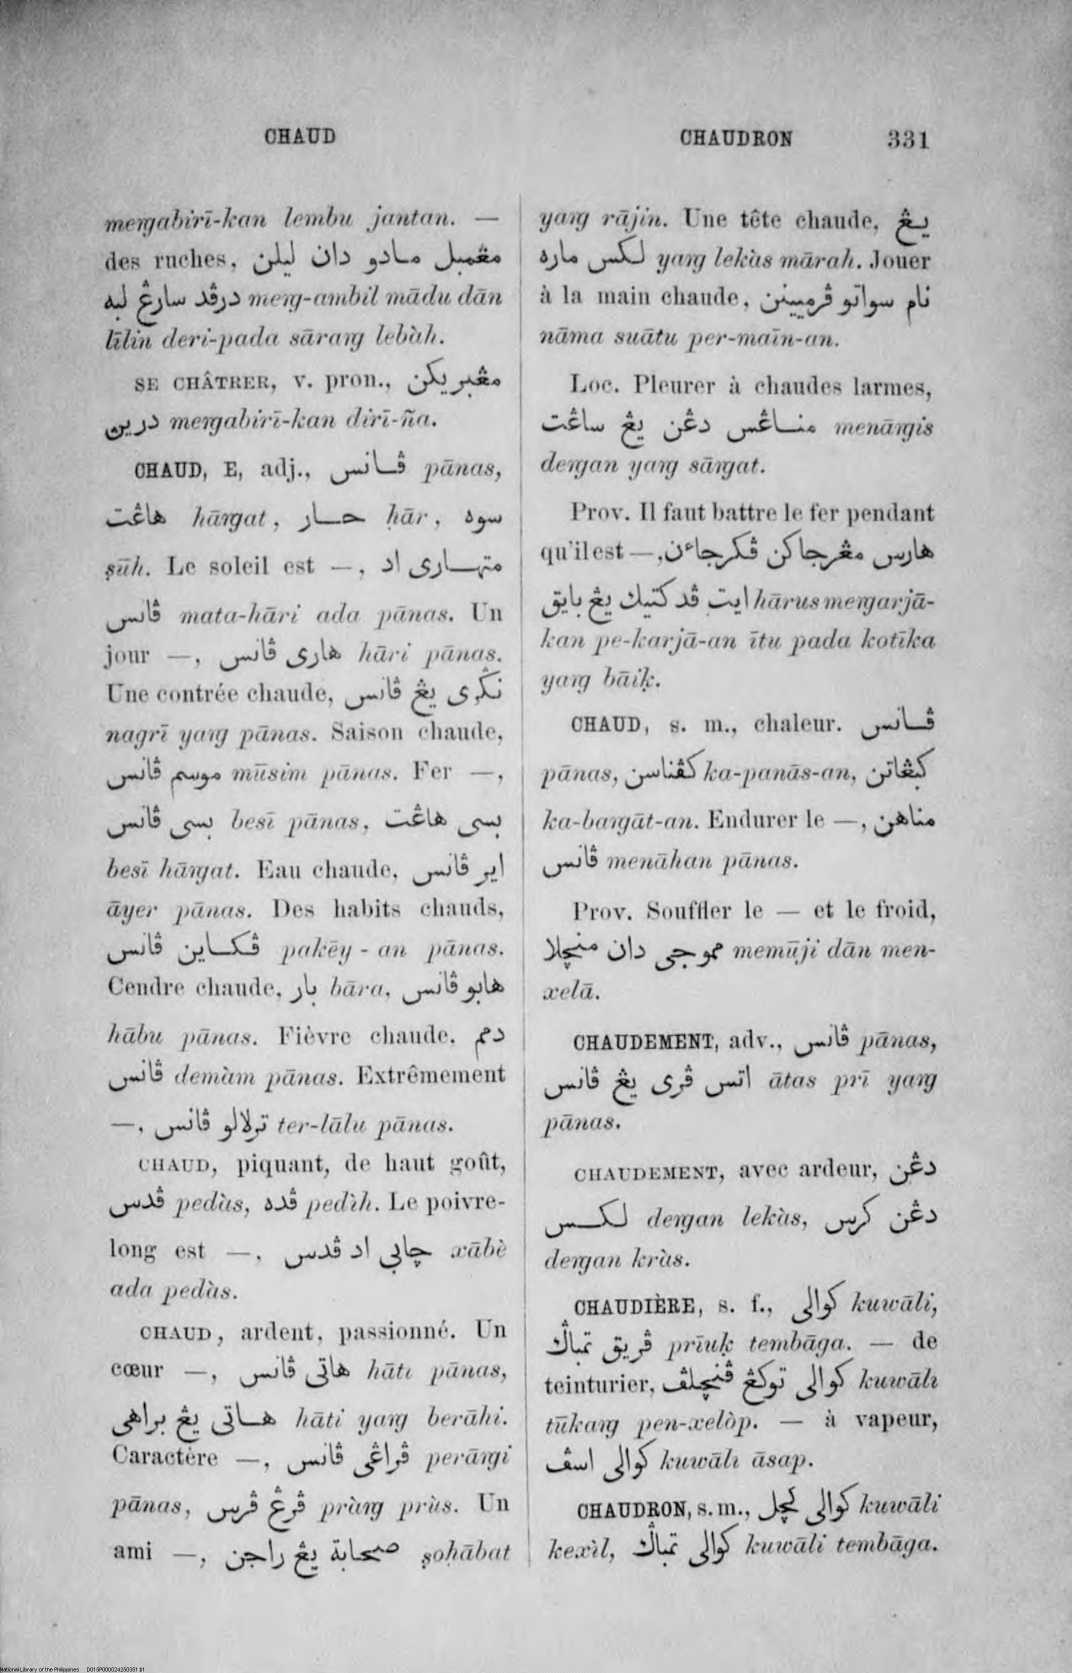 CHAUD
CHAUDRON 331
meŋgabirī-kan lembu jantan. —
des ruches, مڠمبل مادو دان ليلن
درڤد سارڠ لبه meŋ-ambil mādu dān
līlin deri-pada sāraŋ lebàh.
SE CHÂTRER, v. pron., مڠبريكن
درين meŋgabirī-kan dirī-ña.
CHAUD, E, adj., ڤانس pānas,
هاڠت hāŋgat, حار ḥār, سوه
ṣūh. Le soleil est —, متهارى اد
ڤانس mata-hāri ada pānas. Un
jour —, هارى ڤانس hāri pānas.
Une contrée chaude, نڬرى يڠ ڤانس
nagrī yaŋ pānas. Saison chaude,
موسم ڤانس mūsim pānas. Fer —,
بسى ڤانس besī pānas, بسى هاڠت
besī hāŋgat. Eau chaude, اير ڤانس
āyer pānas. Des habits chauds,
ڤكاين ڤانس pakēy-an pānas.
Cendre chaude, بار bāra, هابو ڤانس
hābu pānas. Fièvre chaude, دمم
ڤانس demàm pānas. Extrêmement
—, ترلالو ڤانس ter-lālu pānas.
CHAUD, piquant, de haut goût,
ڤدس pedàs, ڤده pedìh. Le poivre-
long est —, چابي اد ڤدس xābè
ada pedàs.
CHAUD, ardent, passionné. Un
cœur —, هاتى ڤانس hāti pānas,
هاتى يڠ براهى hāti yaŋ berāhi.
Caractère —, ڤراڠى ڤانس perāŋgi
pānas, ڤرڠ ڤرس pràŋ prùs. Un
ami —, صحابة يڠ راجن ṣoḥābat
yaŋ rājin. Une tête chaude, يڠ
لكس ماره yaŋ lekàs mārah. Jouer
à la main chaude, نام سواتو ڤرمييىن
nāma suātu per-maīn-an.
Loc. Pleurer à chaudes larmes,
مناڠس دڠن يڠ ساڠت menāŋgis
deŋgan yaŋ sāŋgat.
Prov. Il faut battre le fer pendant
qu'il est —, هارس مڠرجاكن ڤكرجاءن
ايت ڤد كتيك يڠ بايق hārus meŋgarjā-
kan pe-karjā-an ītu pada kotīka
yaŋ bāiḳ.
CHAUD, s. m., chaleur. ڤانس
pānas, كڤناسن ka-panās-an, كبڠاتن
ka-baŋgāt-an. Endurer le —, مناهن
ڤانس menāhan pānas.
Prov. Souffler le — et le froid,
مموجى دان منچلا memūji dān men-
xelā.
CHAUDEMENT, adv., ڤانس pānas,
اتس ڤرى يڠ ڤانس ātas prī yaŋ
pānas.
CHAUDEMENT, avec ardeur, دڠن
لكس deŋgan lekàs, دڠن كرس
deŋgan kràs.
CHAUDIÈRE, s. f., كوالى kuwāli,
ڤريق تمباڬ prīuḳ tembāga. — de
teinturier, كوالى توكڠ ڤنچلڤ kuwāli
tūkaŋ pen-xelòp. — à vapeur,
كوالى اسڤ kuwāli āsap.
CHAUDRON, s. m., كوالى كچل kuwāli
kexìl, كوالى تمباڬ kuwāli tembāga.
National Library of the Philippines